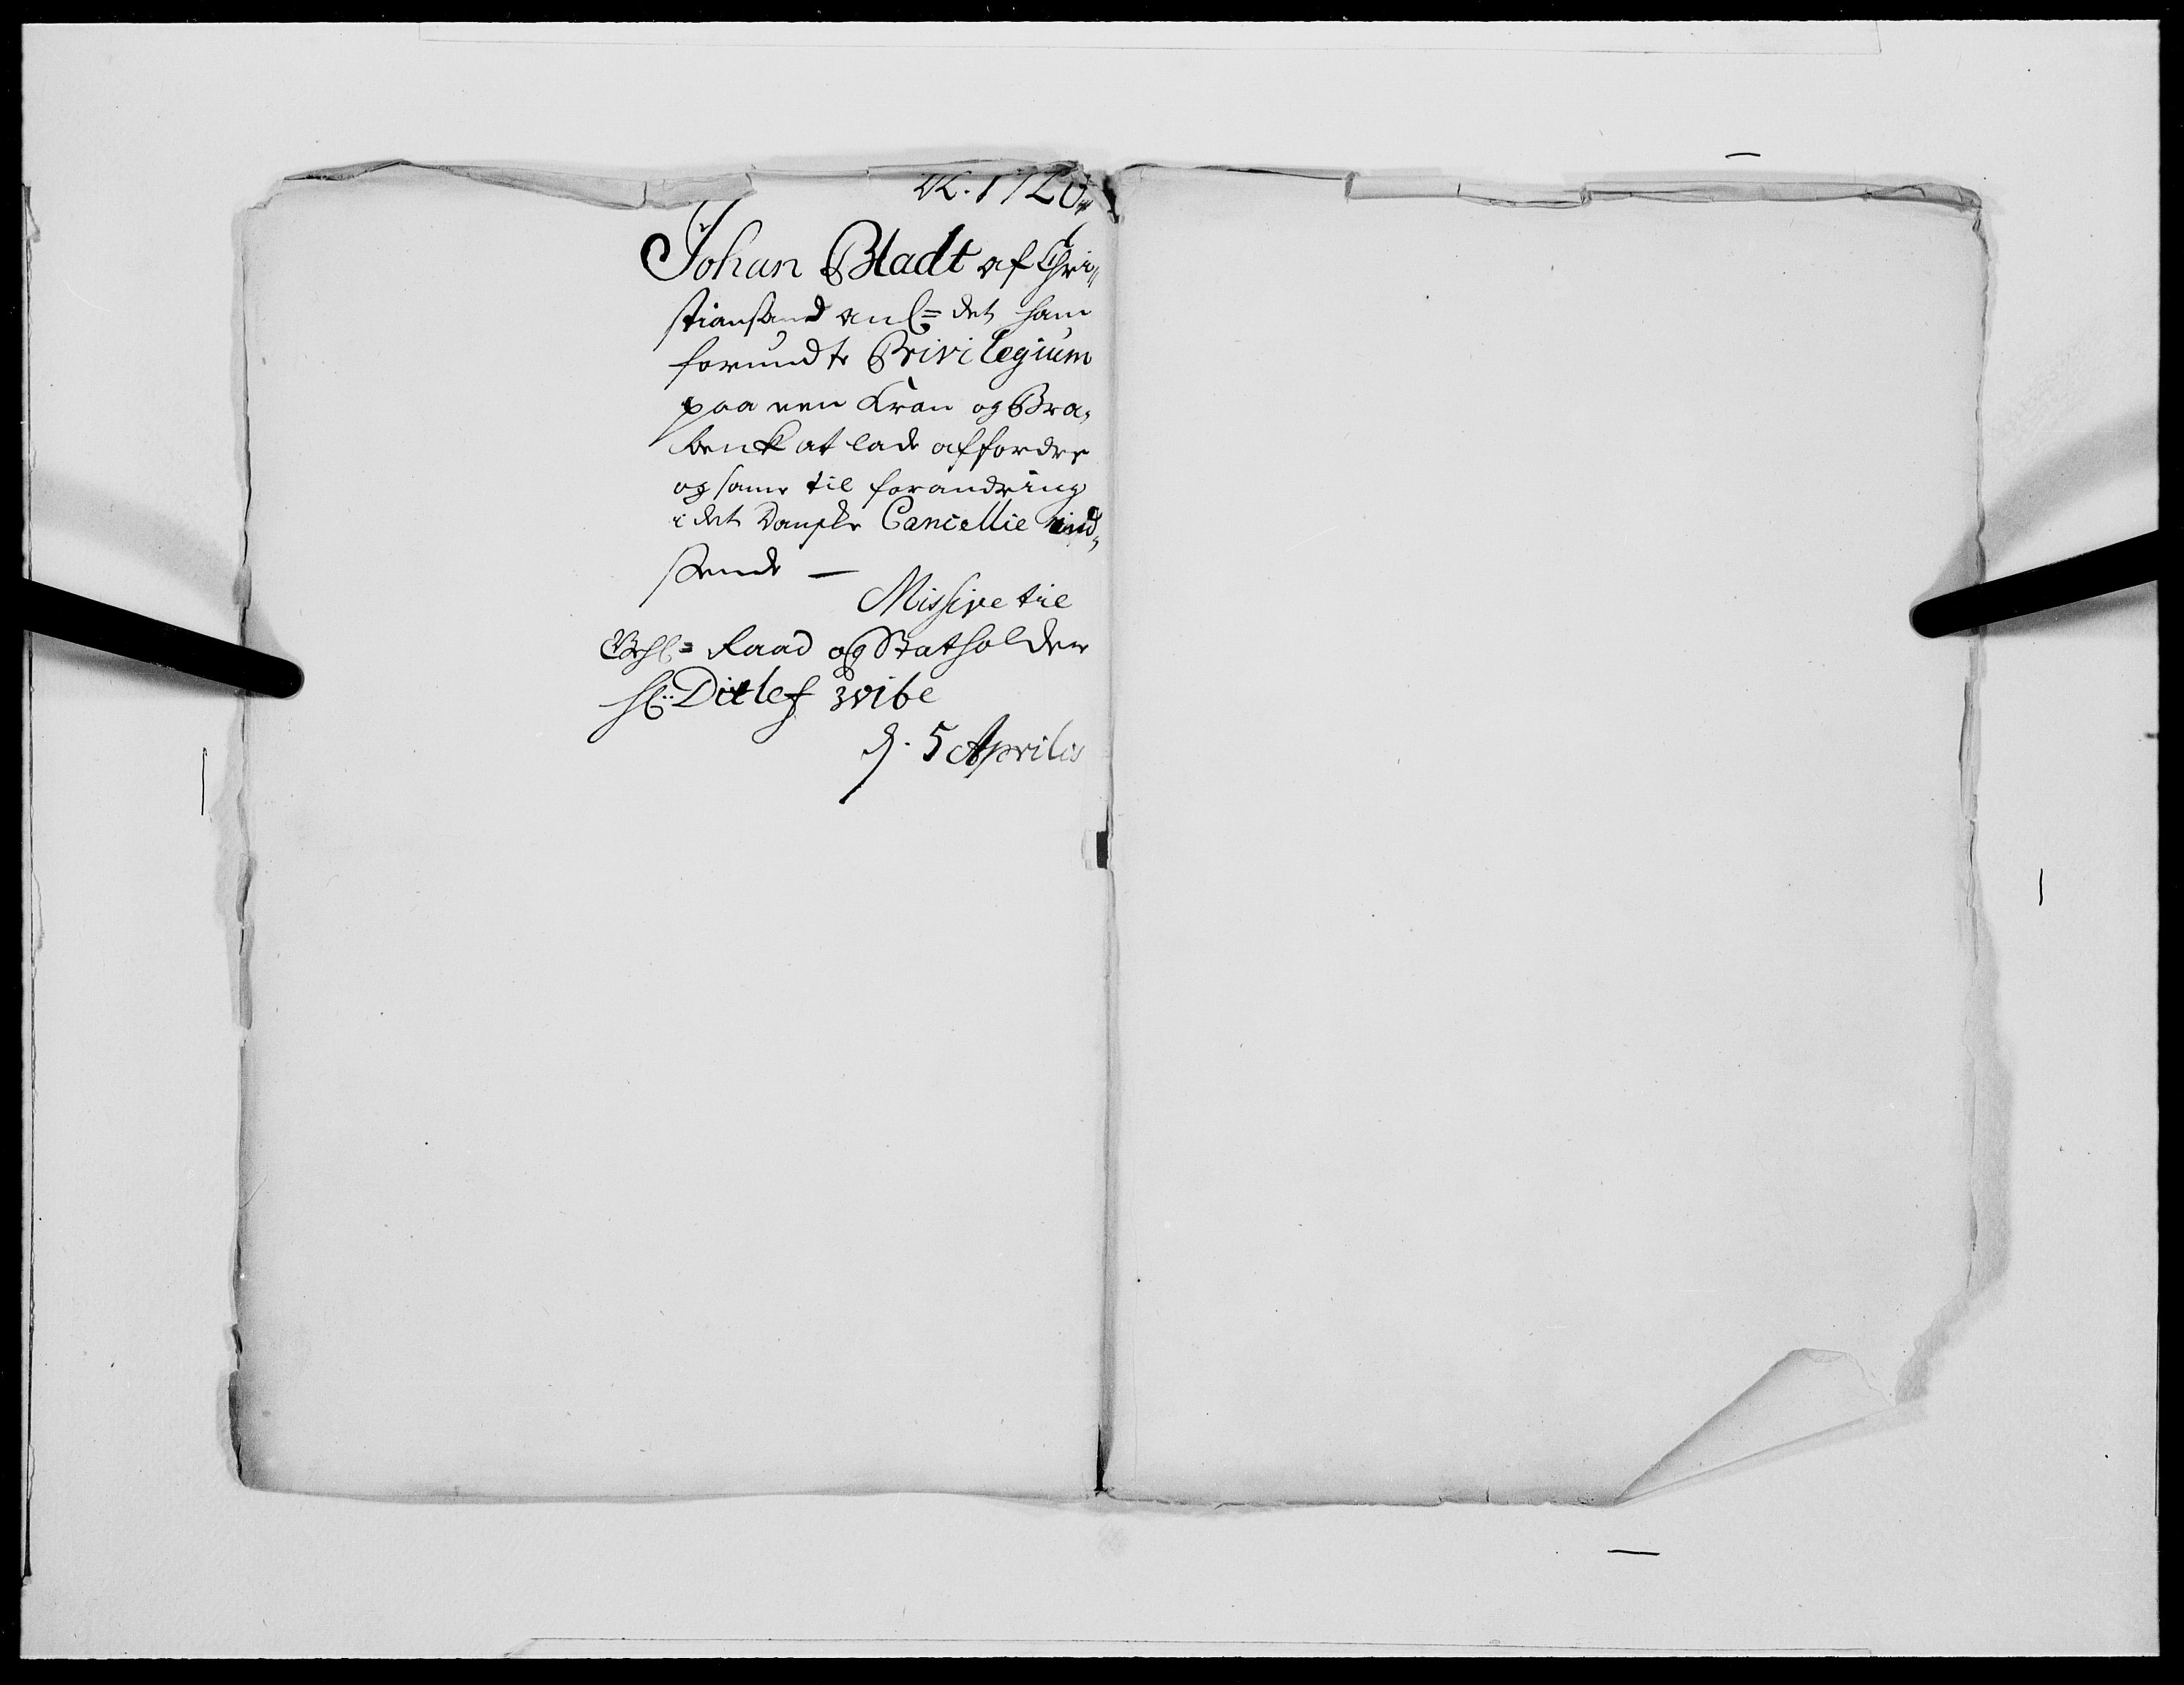 1720
Johan Bladt af Chri„
stiansand anl= det ham
forundte Privilegium
paa een Kran og Bra„
benk at lade affordre
og same til forandring
i det Danske Cancellie ind„
sende —
Missive til
Geh= Raad og Statholder
Hr: Ditlef Wibe
d. 5 Aprilis